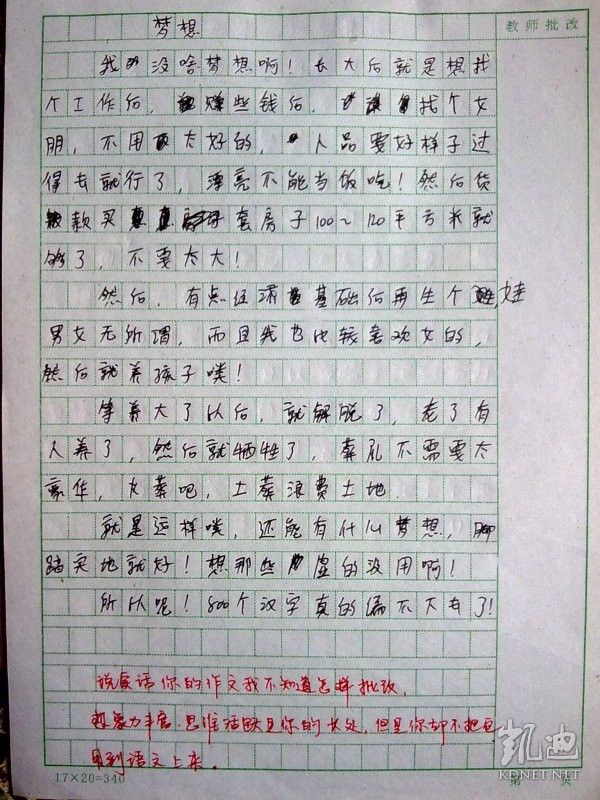 梦想
教师批改
我 没啥梦想啊！长大后就是想找
个工作后， 赚些钱后， 找个女
朋，不用 太好的， 人品要好样子过
得去就行了，漂亮不能当饭吃！然后货
款买 套房子100~120平方米就
够了，不要太大！
然后，有点经济 基础后再生个 娃，
男女无所谓，而且我也比较喜欢女的，
然后就养孩子喽！
等养大了以后，就解脱了，老了有
人养了，然后就牺牲了，葬礼不需要太
豪华，火葬吧，土葬浪费土地
就是这样喽，还能有什么梦想，脚
踏实地就好！想那些 虚的没用啊！
所以呢！800个汉字真的编不下去了！
说实话你的作文我不知道怎样批改，
想象力丰富.思维活跃是你的长处，但是你却不把它
用到语文上来。
17×20=340
第 页
凯迪
KDNET.NET